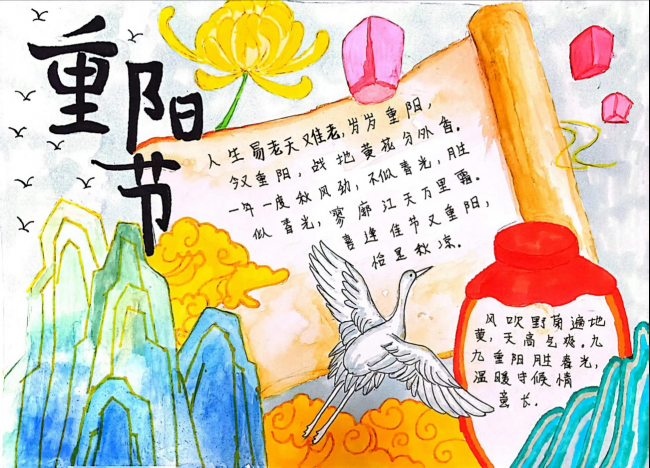 重阳节
人生易老天难老,岁岁重阳,
今又重阳,战地黄花分外香。
一年一度秋风劲,不似春光,胜
似春光,寥廓江天万里霜。
喜逢佳节又重阳,
恰是秋凉。
风吹野菊遍地
黄,天高气爽。九
九重阳胜春光,
温暖守候情
意长。